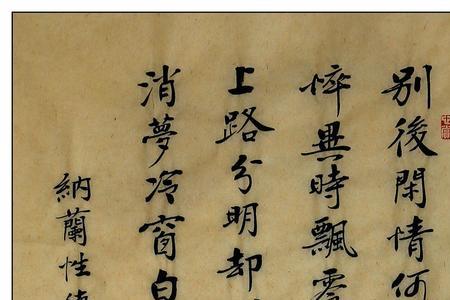 別後閑情何
悴異時飄零
上路分明却
消夢冷窗白
納蘭性德